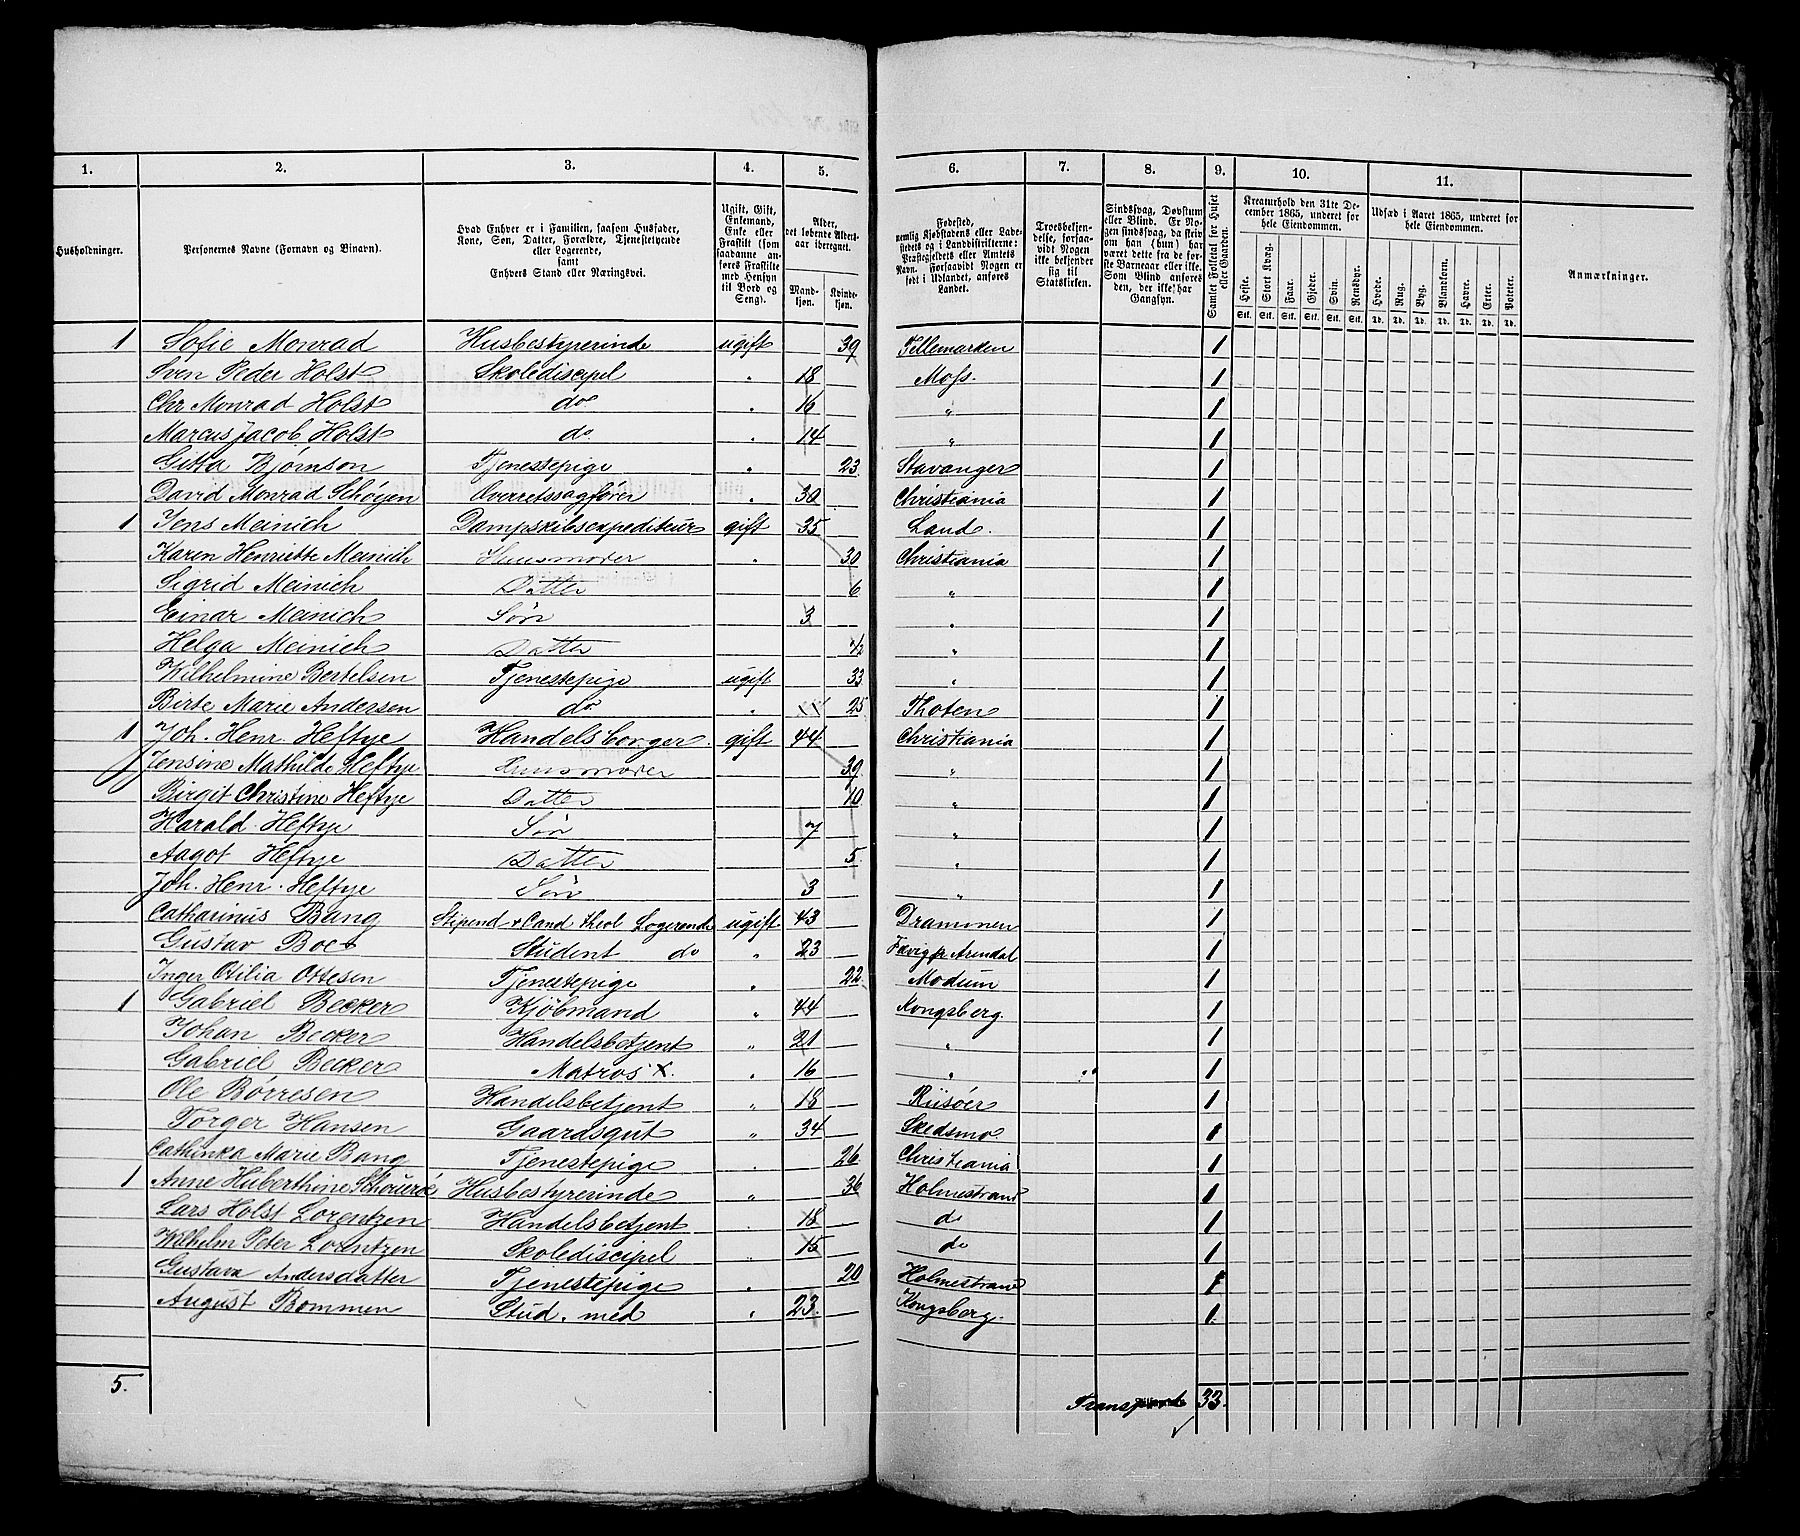 1. 2. 3. 4. 5. 6. 7. 8. 9. 10. 11.
Husholdninger.
Personernes Navne (Fornavn og Binavn).
Hvad Enhver er i Familien, saasom Husfader, Kone, Søn, Datter, Forældre, Tjenestetyende eller Logerende, samt Enhvers Stand eller Næringsvei.
Ugift, Gift, Enkemand, Enke eller Fraskilt (som saadanne anføres Fraskilte med Hensyn til Bord og Seng).
Alder, det løbende Alders-aar iberegnet.
Mandkjøn. Kvindekjøn.
Fødested, nemlig Kjøbstadens eller Ladestedets og i Landdistrikterne: Præstegjeldets eller Amtets Navn. Forsaavidt Nogen er født i Udlandet, anføres Landet.
Troesbekjendelse, forsaavidt Nogen ikke bekjender sig til Statskirken.
Sindssvag, Døvstum eller Blind. Er Nogen sindssvag, da skriv om han (hun) har været dette fra de første Barneaar eller ikke. Som Blind anføres den, der ikke har Gangsyn.
Samlet Folketal for Huset eller Gaarden.
Kreaturhold den 31te December 1865, underet for hele Eiendommen.
Udsæd i Aaret 1865, underet for hele Eiendommen.
Anmærkninger.
Heste. Stort Kvæg. Faar. Gjeder. Svin. Rensdyr. Hvede. Rug. Byg. Blandkorn. Havre. Erter. Poteter.
Stk. Stk. Stk. Stk. Stk. Stk. Td. Td. Td. Td. Td. Td. Td.
1 Sofie Monrad Husbestyrerinde ugift 39 Tellemarken 1
Sven Peder Holst Skolediscipel " 18 Moss. 1
Chr Monrad Holst do " 16 " 1
Marcus Jacob Holst do " 14 " 1
Gitta Bjørnson Tjenestepige " 23 Stavanger 1
David Monrad Schøyen Overretssagfører " 30 Christiania 1
1 Jens Meinich Dampskibsexpediteur gift 35 Land. 1
Karen Henriette Meinich Huusmoder " 30 Christiania 1
Sigrid Meinich Datter 6 " 1
Einar Meinich Søn 3 " 1
Helga Meinich Datter 1/2 " 1
Wilhelmine Bertelsen Tjenestepige ugift 33 " 1
Birte Marie Andersen do " 25 Thoten 1
1 Joh. Henr. Heftye Handelsborger. gift 44 Christiania 1
Jensine Mathilde Heftye Huusmoder 39 " 1
Birgit Christine Heftye Datter 10 " 1
Harald Heftye Søn 7 " 1
Aagot Heftye Datter 5. " 1
Joh. Henr. Heftye Søn 3 " 1
Catharinus Bang Stipend & Cand theol Logerende ugift 43 Drammen 1
Gustav Student do " 23 Arendal 1
Inger Otilia Ottesen Tjenestepige " 22 Modum 1
1 Gabriel Becker Kjöbmand " 44 Kongsberg. 1
Johan Becker Handelsbetjent " 21 " 1
Gabriel Becker Matros X. " 16 " 1
Ole Børresen Handelsbetjent " 18 Riisøer 1
Torger Hansen Gaardsgut " 34 Skedsmo 1
Cathinka Marie Bang Tjenestepige " 26 Christiania 1
1 Anne Huberthine Husbestyrerinde " 36 Holmestrand 1
Lars Holst Lorentzen Handelsbetjent " 18 do 1
Wilhelm Peter Lorentzen Skolediscipel " 15 do 1
Gustava Andersdatter Tjenestepige " 20 Holmestrand 1
August Bommen Stud. med " 23. Kongsberg. 1.
5. Transport 33.